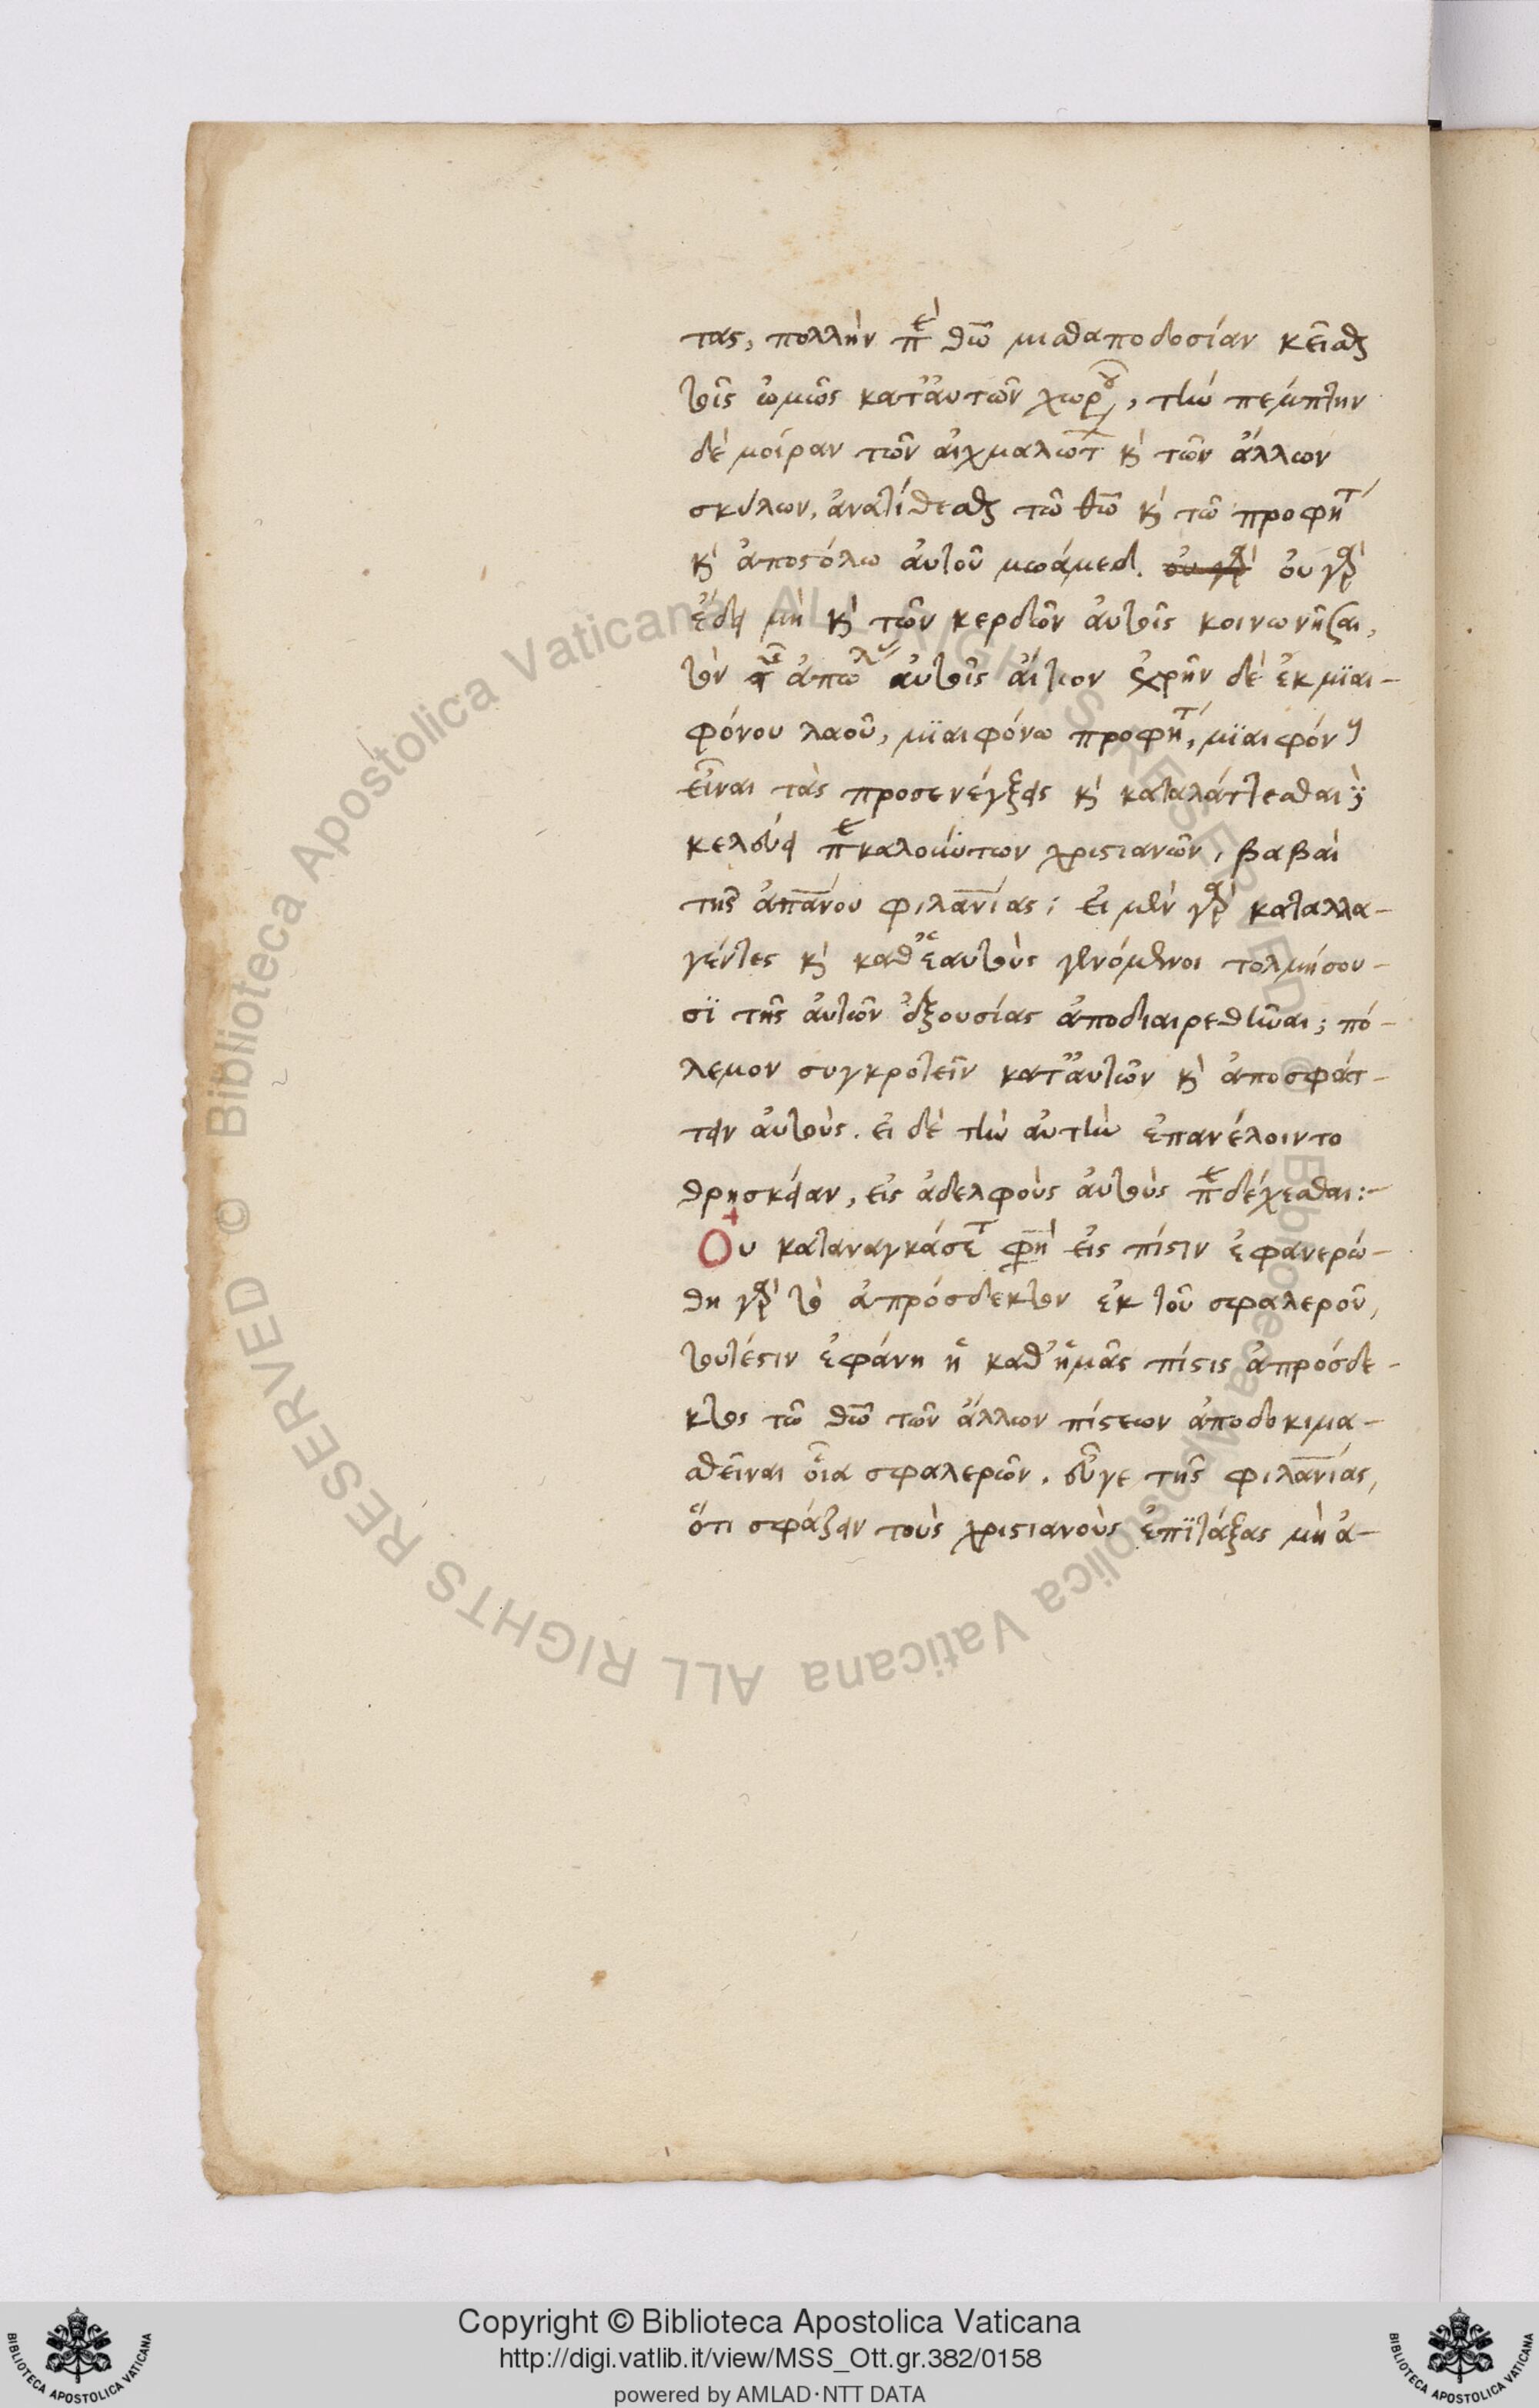 τας, πολλὴν πὲ θῶ μισθαποδοσίαν κεῖσθαι
τοῖς ὠμῶς κατ' αὐτῶν χωροῦ, τὴν πέμπτην
δὲ μοίραν τῶν αἰχμαλώτ κ τῶν ἄλλων
σκύλων, ἀνατίθεσθαι τῶ θῶ κ τῶ προφήτ
κ ἀποστόλω αὐτοῦ μωάμεδ. οὐ γὰρ οὐ γὰρ
ἔδει μὴ κ τῶν κερδῶν αὐτοῖς κοινωνῆσαι,
τὸν αὐτοῖς αἴτιον ἐχρῆν δὲ ἐκ μϊαι-
φόνου λαοῦ, μϊαιφόνω προφήτ, μϊαιφόν
εἶναι τὰς προσενέγξεις κ καταλάττεσθαι
κελεύει πεκαλουμένων χριστιανῶν, βαβαὶ
τῆς ἀπανου φιλανίας· εἰ μὲν γὰρ καταλλα-
γέντες κ καθ' ἑαυτοὺς γενόμενοι τολμήσου-
σϊ τῆς αὐτῶν ἐξουσίας ἀποδιαιρεθῆναι; πό-
λεμον συγκροτεῖν κατ' αὐτῶν κ ἀποσφάτ-
τειν αὐτούς. εἰ δὲ τὴν αὐτὴν ἐπανέλοιντο
θρησκείαν, εἰς ἀδελφοὺς αὐτοὺς πεδέχεσθαι:-
Οὐ καταναγκάσετ φη εἰς πίστιν ἐφανερώ-
θη γὰρ τὸ ἀπρόσδεκτον ἐκ τοῦ σφαλεροῦ,
τουτέστιν ἐφάνη ἡ καθ' ἡμᾶς πίστις ἀπρόσδε-
κτος τῶ θῶ τῶν ἄλλων πίστεων ἀποδοκιμα-
σθεῖναι οἷα σφαλερῶν. εὖγε τῆς φιλανίας,
ὅτι σφάζειν τοὺς χριστιανοὺς ἐπϊτάξας μὴ ἀ-
Copyright © Biblioteca Apostolica Vaticana
http://digi.vatlib.it/view/MSS_Ott.gr.382/0158
powered by AMLAD·NTT DATA
BIBLIOTECA APOSTOLICA VATICANA
BIBLIOTECA APOSTOLICA VATICANA
© Biblioteca Apostolica Vaticana ALL RIGHTS RESERVED © Biblioteca Apostolica Vaticana ALL RIGHTS RESERVED